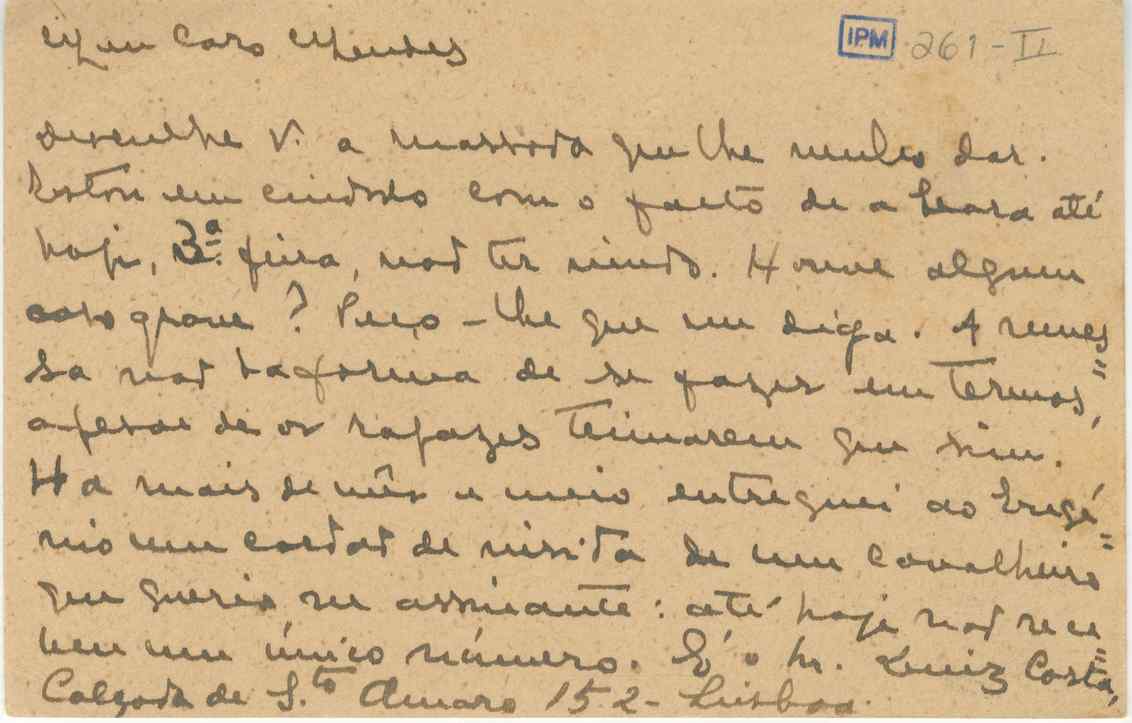 Meu Caro Mendes
IPM 261-II
desculpe V. a massada que lhe venho dar.
Estou em cuidado com o facto de a Seara até
hoje, 3.ª feira, não ter vindo. Houve algum
caso grave? Peço-lhe que me diga. A remes=
sa não ha forma de se fazer em termos,
apesar de os rapazes teimarem que sim.
Ha mais de mês e meio entreguei ao Eugé=
nio um cartão de visita de um cavalheiro
que queria ser assinante: até hoje não rece=
beu um único número. É o Sr. Luiz Costa,
Calçada de S.to Amaro 152-Lisboa.